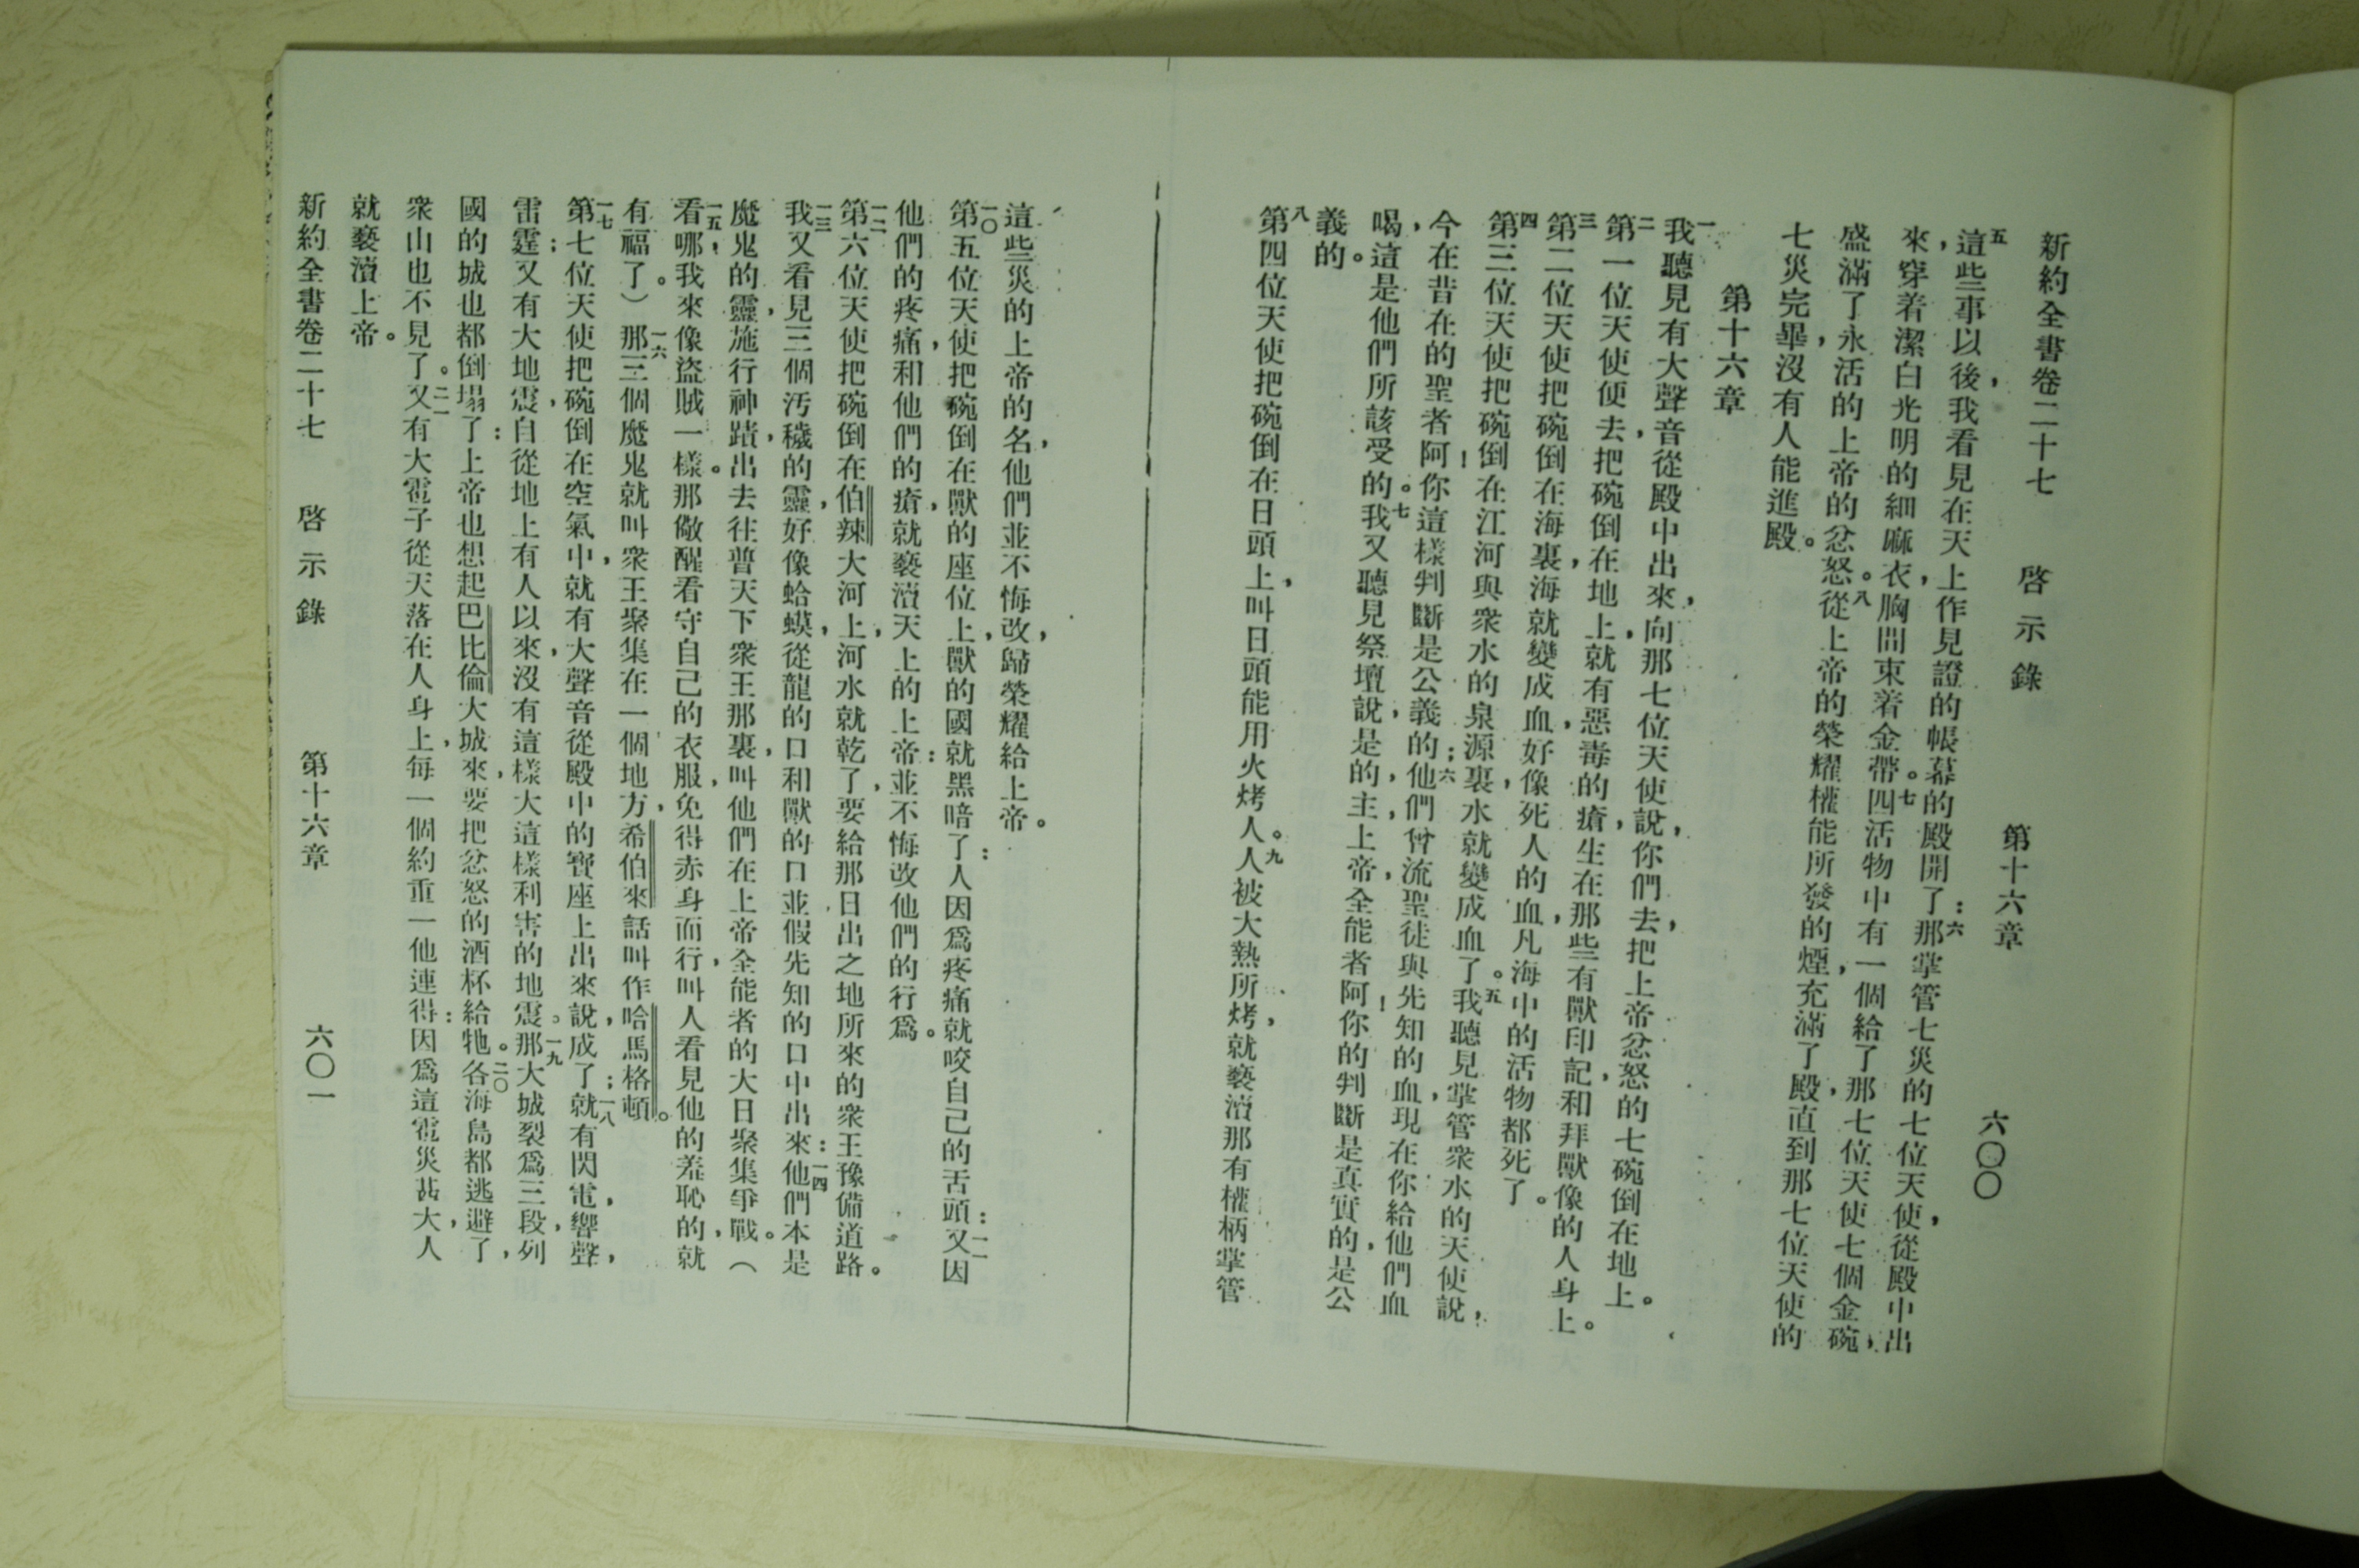 新約全書卷二十七　啓示錄　第十六章　六〇〇
五這些事以後，我看見在天上作見證的帳幕的殿開了：六那掌管七災的七位天使，從殿中出
來，穿着潔白光明的細麻衣，胸間束着金帶。七四活物中有一個給了那七位天使七個金碗，
盛滿了永活的上帝的忿怒。八從上帝的榮耀權能所發的煙，充滿了殿，直到那七位天使的
七災完畢，沒有人能進殿。
第十六章
一我聽見有大聲音從殿中出來，向那七位天使說，你們去，把上帝忿怒的七碗倒在地上。
二第一位天使便去，把碗倒在地上，就有惡毒的瘡，生在那些有獸印記，和拜獸像的人身上。
三第二位天使把碗倒在海裏，海就變成血，好像死人的血，凡海中的活物都死了。
四第三位天使把碗倒在江河與衆水的泉源裏，水就變成血了。五我聽見掌管衆水的天使說，
今在昔在的聖者阿！你這樣判斷是公義的；六他們曾流聖徒與先知的血，現在你給他們血
喝，這是他們所該受的。七我又聽見祭壇說，是的，主，上帝，全能者阿！你的判斷是真實的，是公
義的。
八第四位天使把碗倒在日頭上，叫日頭能用火烤人。九人被大熱所烤，就褻瀆那有權柄掌管
這些災的上帝的名，他們並不悔改，歸榮耀給上帝。
一〇第五位天使把碗倒在獸的座位上，獸的國就黑暗了：人因爲疼痛就咬自己的舌頭：一一又因
他們的疼痛，和他們的瘡，就褻瀆天上的上帝：並不悔改他們的行爲。
一二第六位天使把碗倒在伯辣大河上，河水就乾了，要給那日出之地所來的衆王豫備道路。
一三我又看見三個汚穢的靈，好像蛤蟆，從龍的口和獸的口並假先知的口中出來：一四他們本是
魔鬼的靈，施行神蹟，出去往普天下衆王那裏，叫他們在上帝全能者的大日聚集爭戰。（
一五看哪，我來像盜賊一樣。那儆醒看守自己的衣服，免得赤身而行，叫人看見他的羞恥的，就
有福了。）一六那三個魔鬼就叫衆王聚集在一個地方，希伯來話叫作哈馬格頓。
一七第七位天使把碗倒在空氣中，就有大聲音從殿中的寶座上出來說，成了；一八就有閃電，響聲，
雷霆；又有大地震，自從地上有人以來，沒有這樣大這樣利害的地震。一九那大城裂爲三段，列
國的城也都倒塌了：上帝也想起巴比倫大城來，要把忿怒的酒杯給牠。二〇各海島都逃避了，
衆山也不見了。二一又有大雹子從天落在人身上，每一個約重一他連得：因爲這雹災甚大，人
就褻瀆上帝。
新約全書卷二十七　啓示錄　第十六章　六〇一